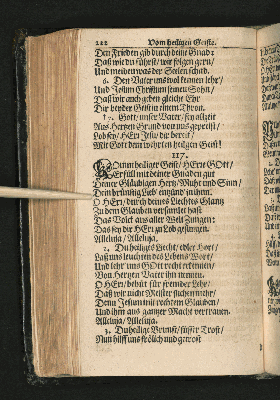 222 Vom heiligen Geiste.
Den Frieden gib durch deine Gnad:
Daß wir dir folgen gern/
Und meiden was der Seelen schad.
6. Den Vater uns wol kennen lehr/
Und JEsum Christum seinen Sohn/
Daß wir auch geben gleiche Ehr
Dir beyder Geist in einem Thron.
7. Gott/ unser Vater/ sey allzeit
Aus Hertzen Grund von uns gepreist/
Lob sey/ HErr JEsu/ dir bereit/
Mit Gott dem wahrten heilgen Geist!
117.
KOmm heiliger Geist/ HErre GOtt/
Erfüll mit deiner Gnaden gut
Deiner Gläubigen Hertz/ Muht und Sinn/
Dein brünstig Lieb entzünd in ihnn.
O HErr/ durch deines Liechtes Glantz
Zu dem Glauben versamlet hast
Das Volck aus aller Welt Zungen:
Das sey dir HErr zu Lob gesungen.
Alleluja/ Alleluja.
2. Du heiliges Liecht/ edler Hort/
Laß uns leuchten des Lebens Wort/
Und lehr uns GOtt recht erkennen/
Von Hertzen Vater ihn nennen.
O HErr/ behüt für frembder Lehr/
Daß wir nicht Meister suchen mehr/
Denn JEsum mit rechtem Glauben/
Und ihm aus gantzer Macht vertrauen.
Alleluja/ Alleluja.
3. Du heilige Brunst/ süsser Trost/
Nun hilff uns frölich und getrost